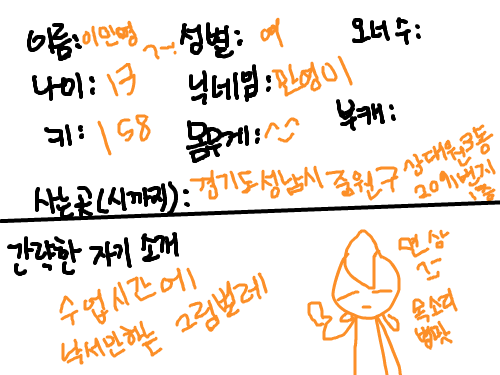 이름: 이민영 성별: 여 오너 수:
나이: 13 닉네임: 민영이
부캐:
키: 158 몸무게: ^^
사는곳(시까지): 경기도 성남시 중원구 상대원3동
2091번지
1층
간략한 자기 소개
수업시간에
낙서만하는 그림벌레
면상